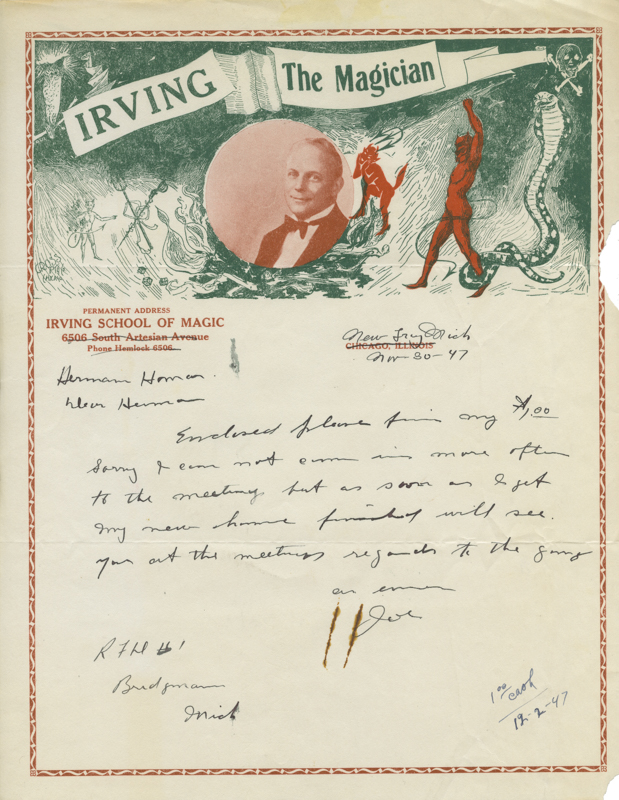 IRVING The Magician
PERMANENT ADDRESS
IRVING SCHOOL OF MAGIC
6506 South Artesian Avenue
Phone Hemlock 6506
New Troy Mich
CHICAGO, ILLINOIS
Nov-30-47
Hermann Homar.
Dear Herman
Enclosed please fin my $1,00
Sorry I can not come in more often
to the meetings but as soon as I get
my new home finished will see.
you at the meetings regards to the gang
as ever
Joe
#1
Bridgman
Mich
1.00 cash
12-2-47